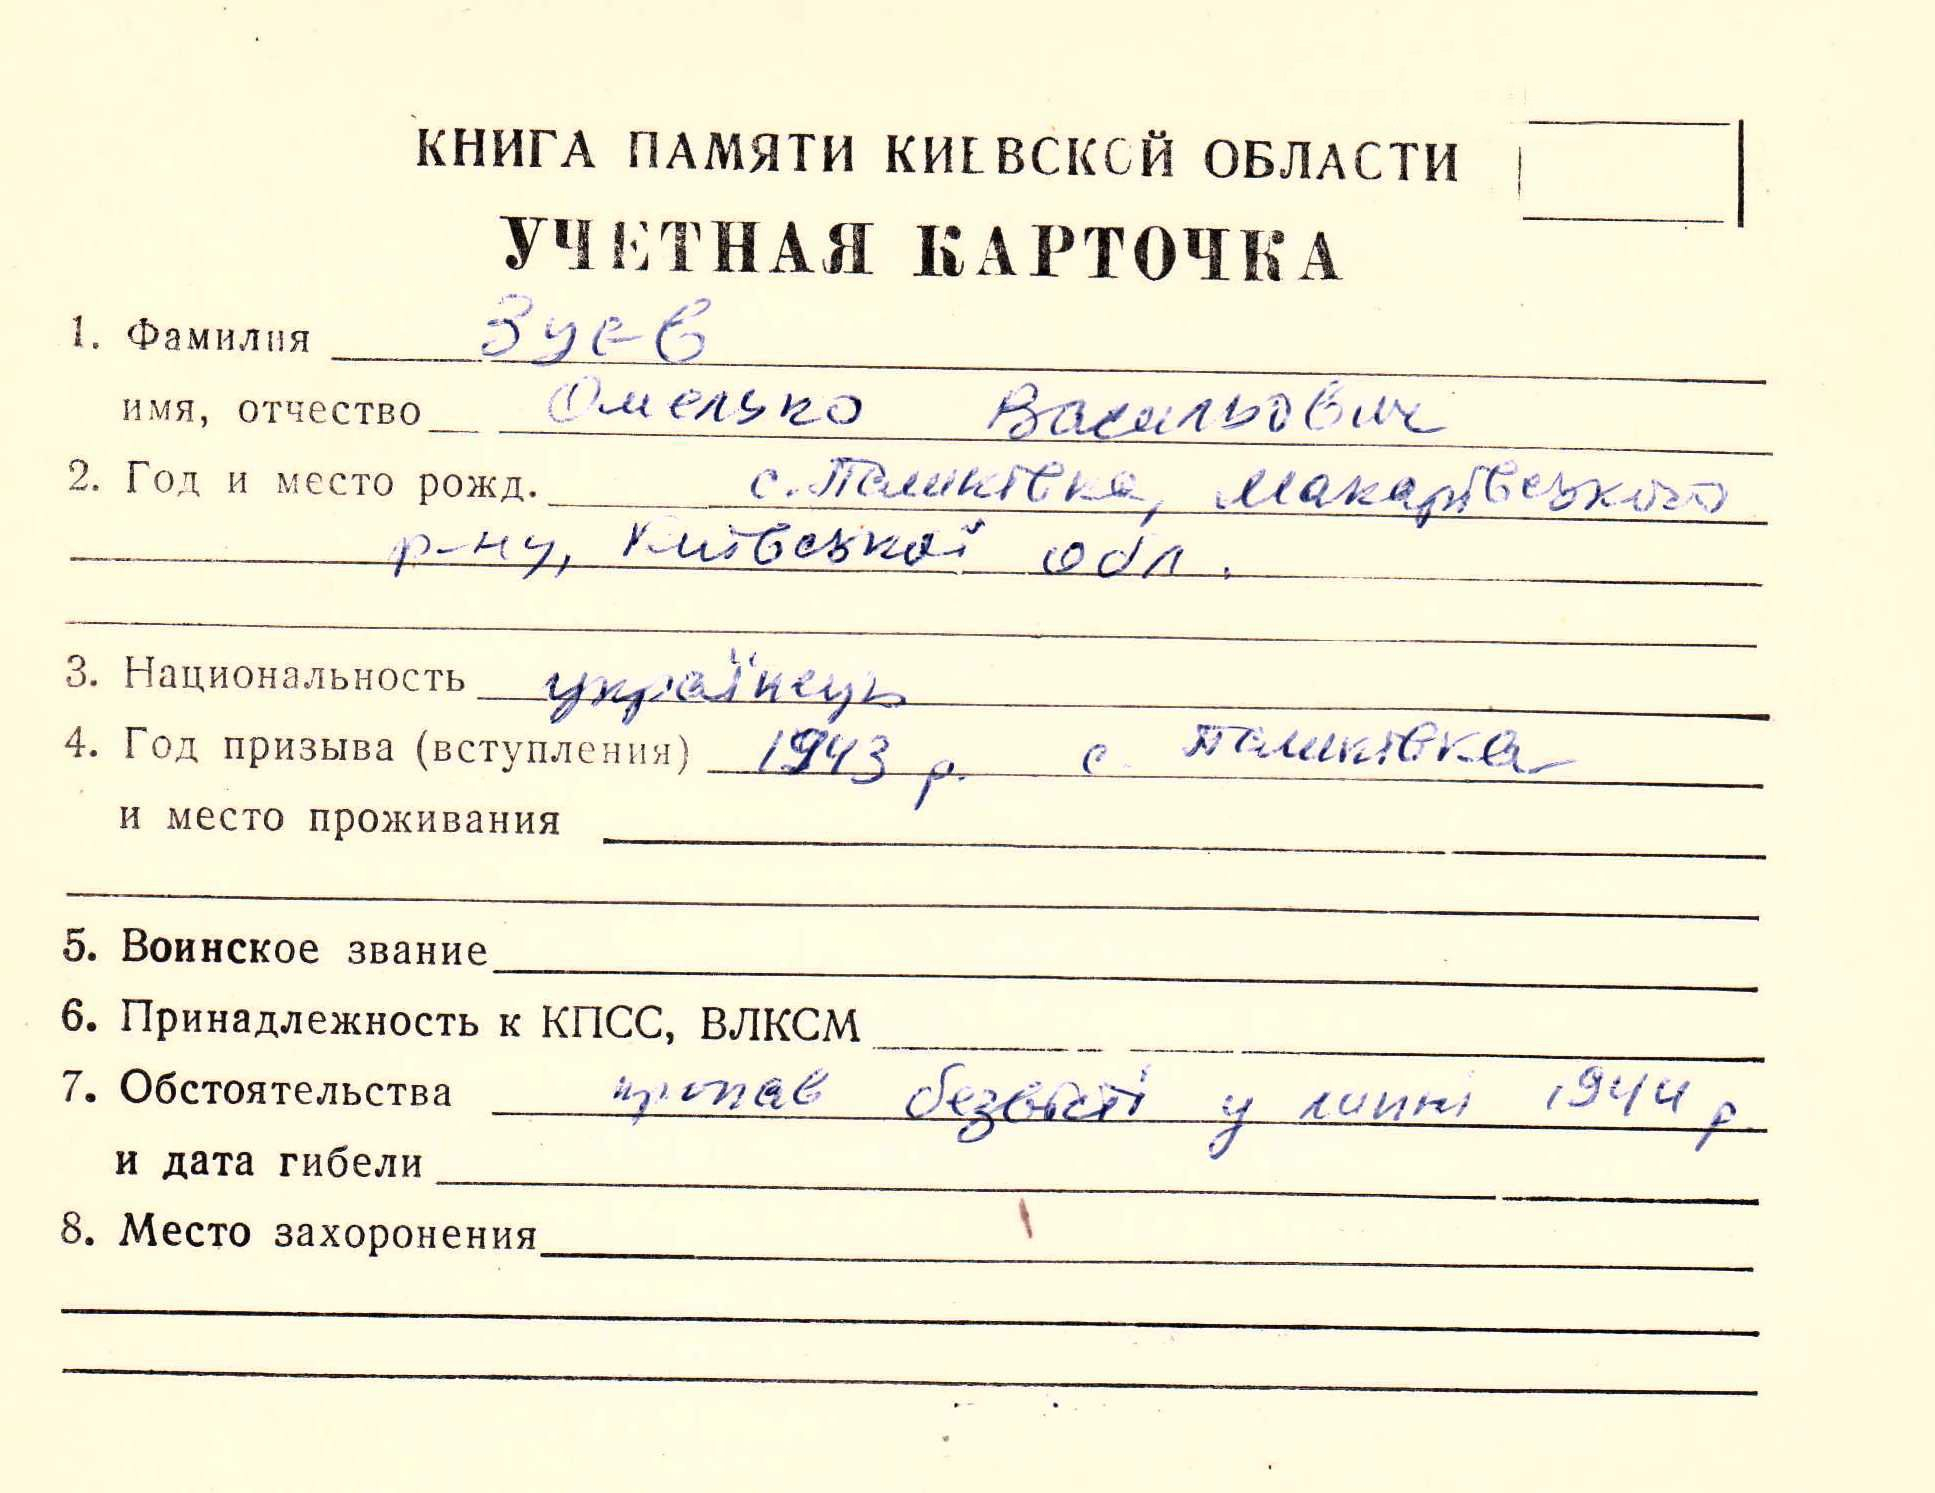 КНИГА ПАМЯТИ КИЕВСКОЙ ОБЛАСТИ
УЧЕТНАЯ КАРТОЧКА
1. Фамилия Зуев
имя, отчество Омелько Васильович
2. Год и место рожд. с. Пашківка, Макарівського
р-ну, Київської обл.
3. Национальность українець
4. Год призыва (вступления) 1943 р. с. Пашківка
и место проживания
5. Воинское звание
6. Принадлежность к КПСС, ВЛКСМ
7. Обстоятельства пропав безвісті у липні 1944 р.
и дата гибели
8. Место захоронения